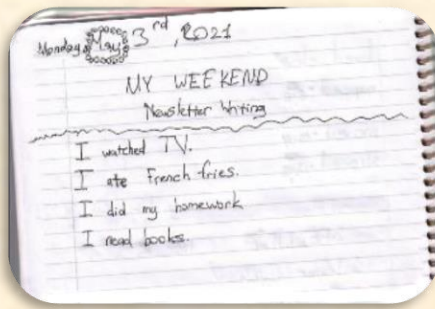 Monday, May 3rd, 2021
MY WEEKEND
Newsletter Writing
I watched TV.
I ate French fries.
I did my homework
I read books.